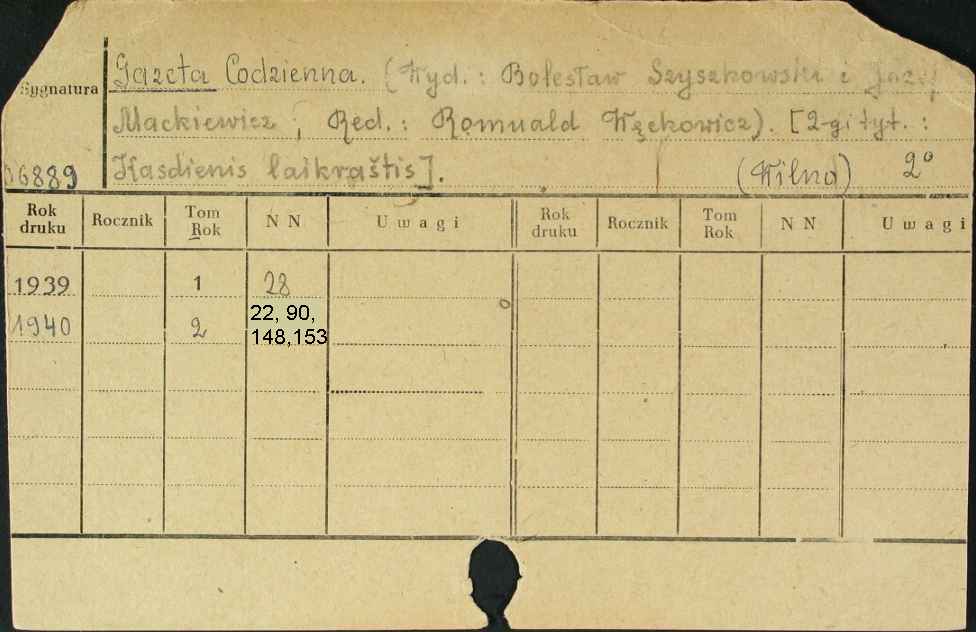 Gazeta Codzienna. (Wyd.: Bolesław Szyszkowski i Józef
Sygnatura
Mackiewicz; Red.: Romuald Węckowicz). [2-gi tyt.:
Kasdienis laikraštis]. (Wilno) 2°
6889
Rok druku Rocznik Tom Rok N N Uwagi Rok druku Rocznik Tom Rok N N Uwagi
1939 1 28
1940 2 22, 90,
148,153